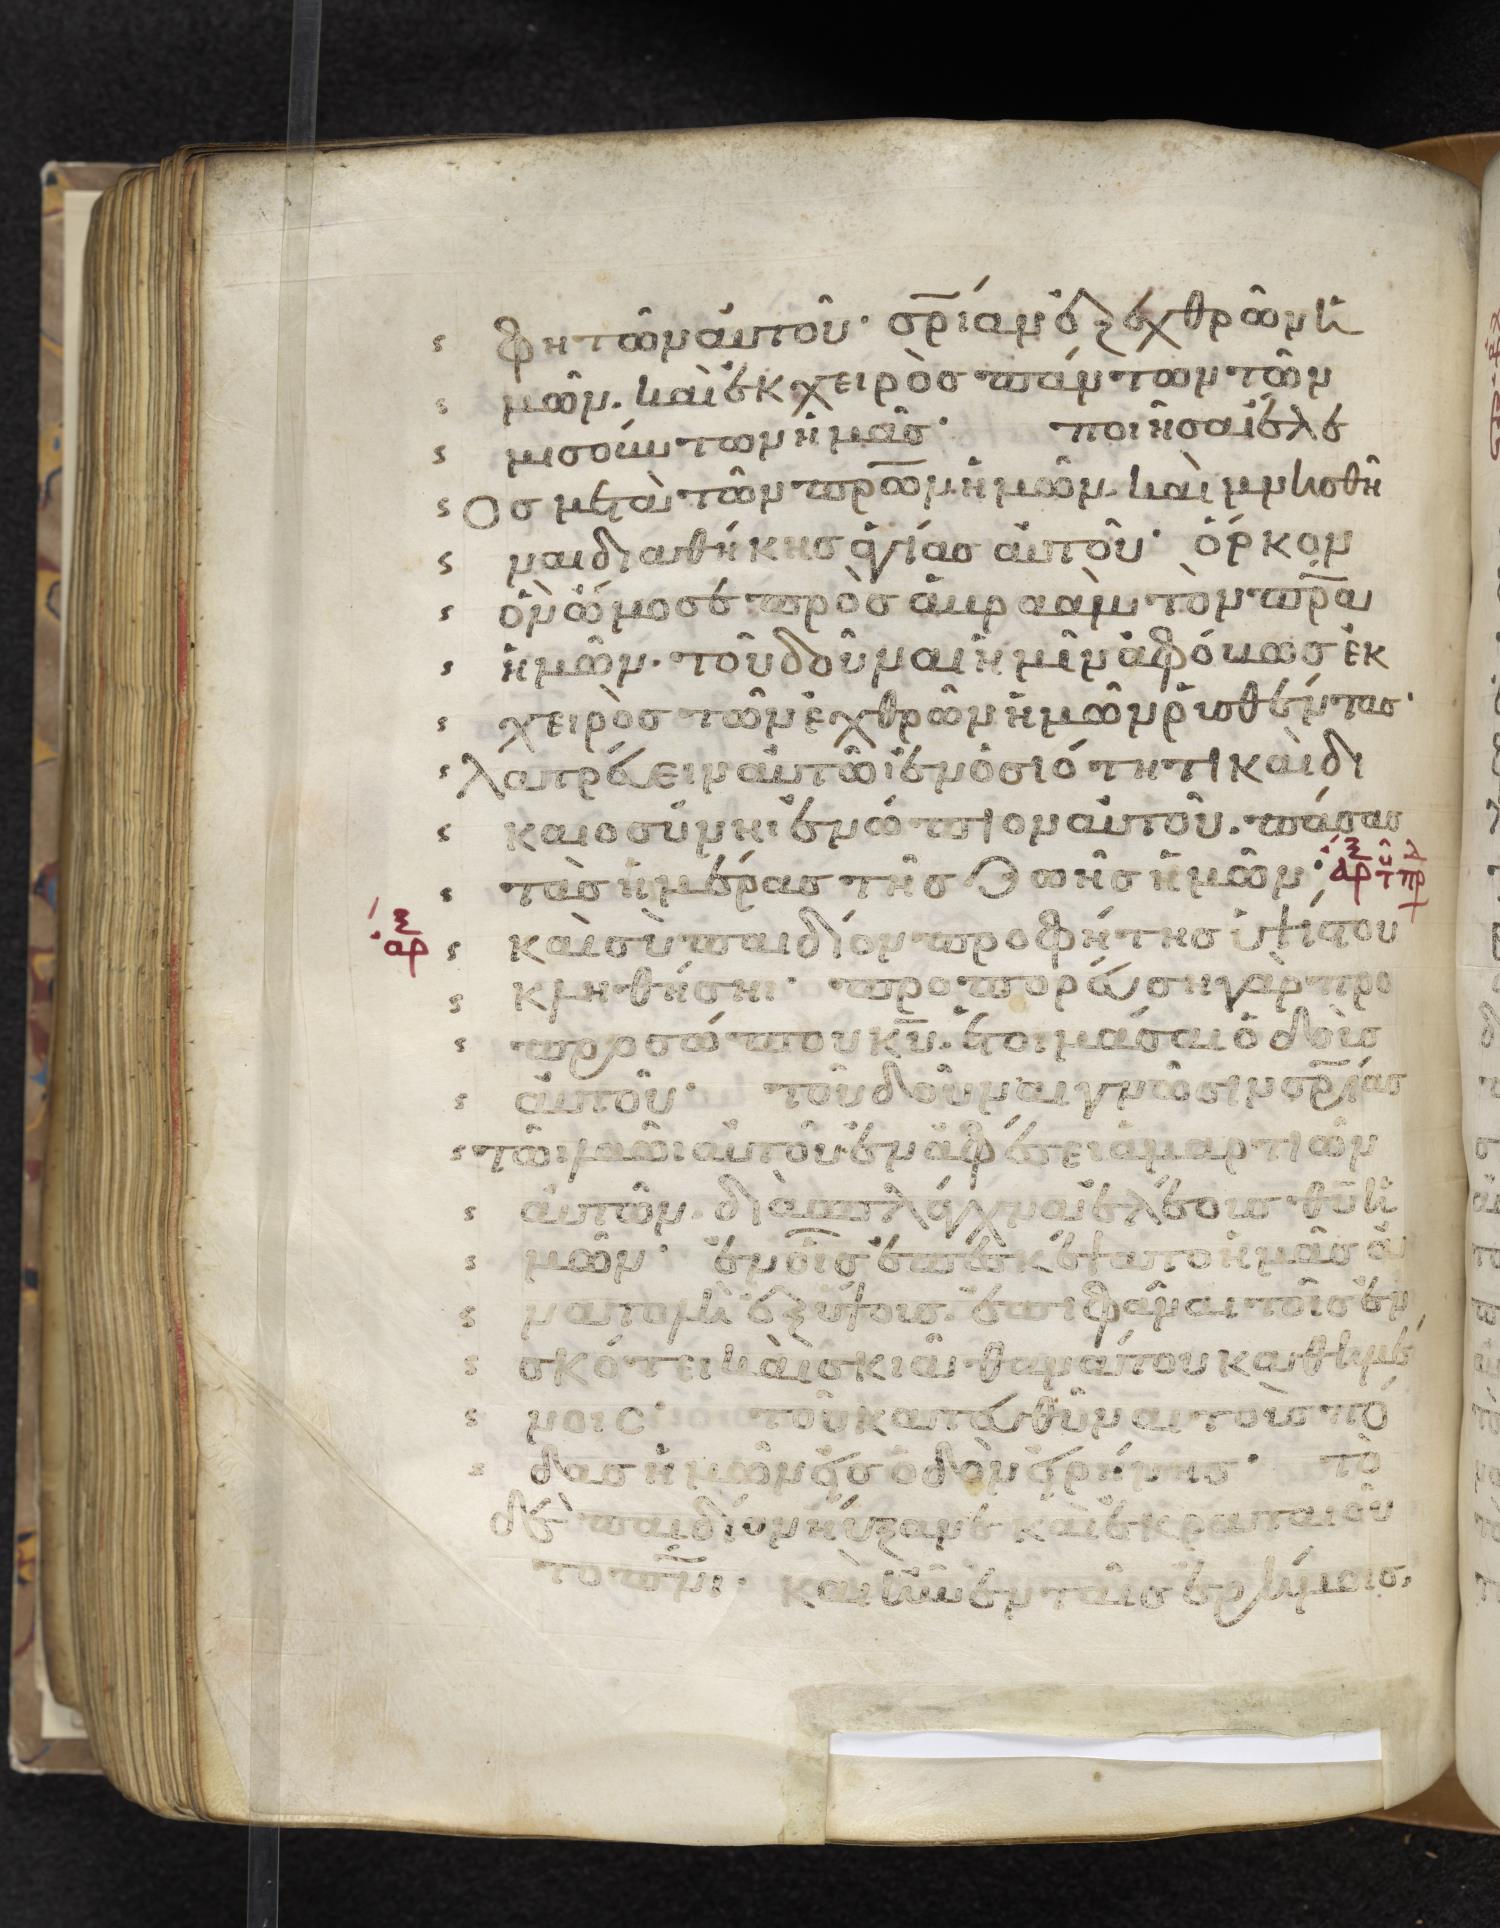 φητῶν αὐτοῦ· σρ̅ίαν ἐξ ἐχθρῶν ἡ
μῶν. καὶ ἐκ χειρὸς πάντων τῶν
μισούντων ἡμᾶς· ποιῆσαι ἔλε
ος μετὰ τῶν πρω̅ν ἡμῶν. καὶ μνησθῆ
ναι διαθήκης ἁγίας αὐτοῦ· ὅρκον
ὃν ὤμοσε πρὸς ἀβραὰμ τὸν πρ̅α
ἡμῶν. τοῦ δοῦναι ἡμῖν ἀφόβως ἐκ
χειρὸς τῶν ἐχθρῶν ἡμῶν ῥυσθέντας·
λατρεύειν αὐτῶι ἐν ὁσιότητι καὶ δι
καιοσύνηι ἐνώπιον αὐτοῦ. πάσας
τὰς ἡμέρας τῆς ζωῆς ἡμῶν·
ἀρξ
καὶ σὺ παιδίον προφήτης ὑψίστου
κληθήσηι· προπορεύση γὰρ πρὸ
προσώπου κυ̅. ἑτοιμάσαι ὁδοὺς
αὐτοῦ· τοῦ δοῦναι γνῶσιν σρ̅ίας
τῶι λαῶι αὐτοῦ ἐν ἀφέσει ἁμαρτιῶν
αὐτῶν. διὰ σπλάγχνα ἐλέους θυ̅ ἡ
μῶν· ἐν οἷς ἐπεσκέψατο ἡμᾶς ἀ
νατολὴ ἐξ ὕψους. ἐπιφᾶναι τοῖς ἐν
σκότει καὶ σκιᾶι θανάτου καθημέ
νοις· τοῦ κατευθῦναι τοὺς πό
δας ἡμῶν εἰς ὁδὸν εἰρήνης· τὸ
δὲ παιδίον ηὔξανε καὶ ἐκραταιοῦ
το πν̅ι· καὶ ἦν ἐν ταῖς ἐρήμοις,